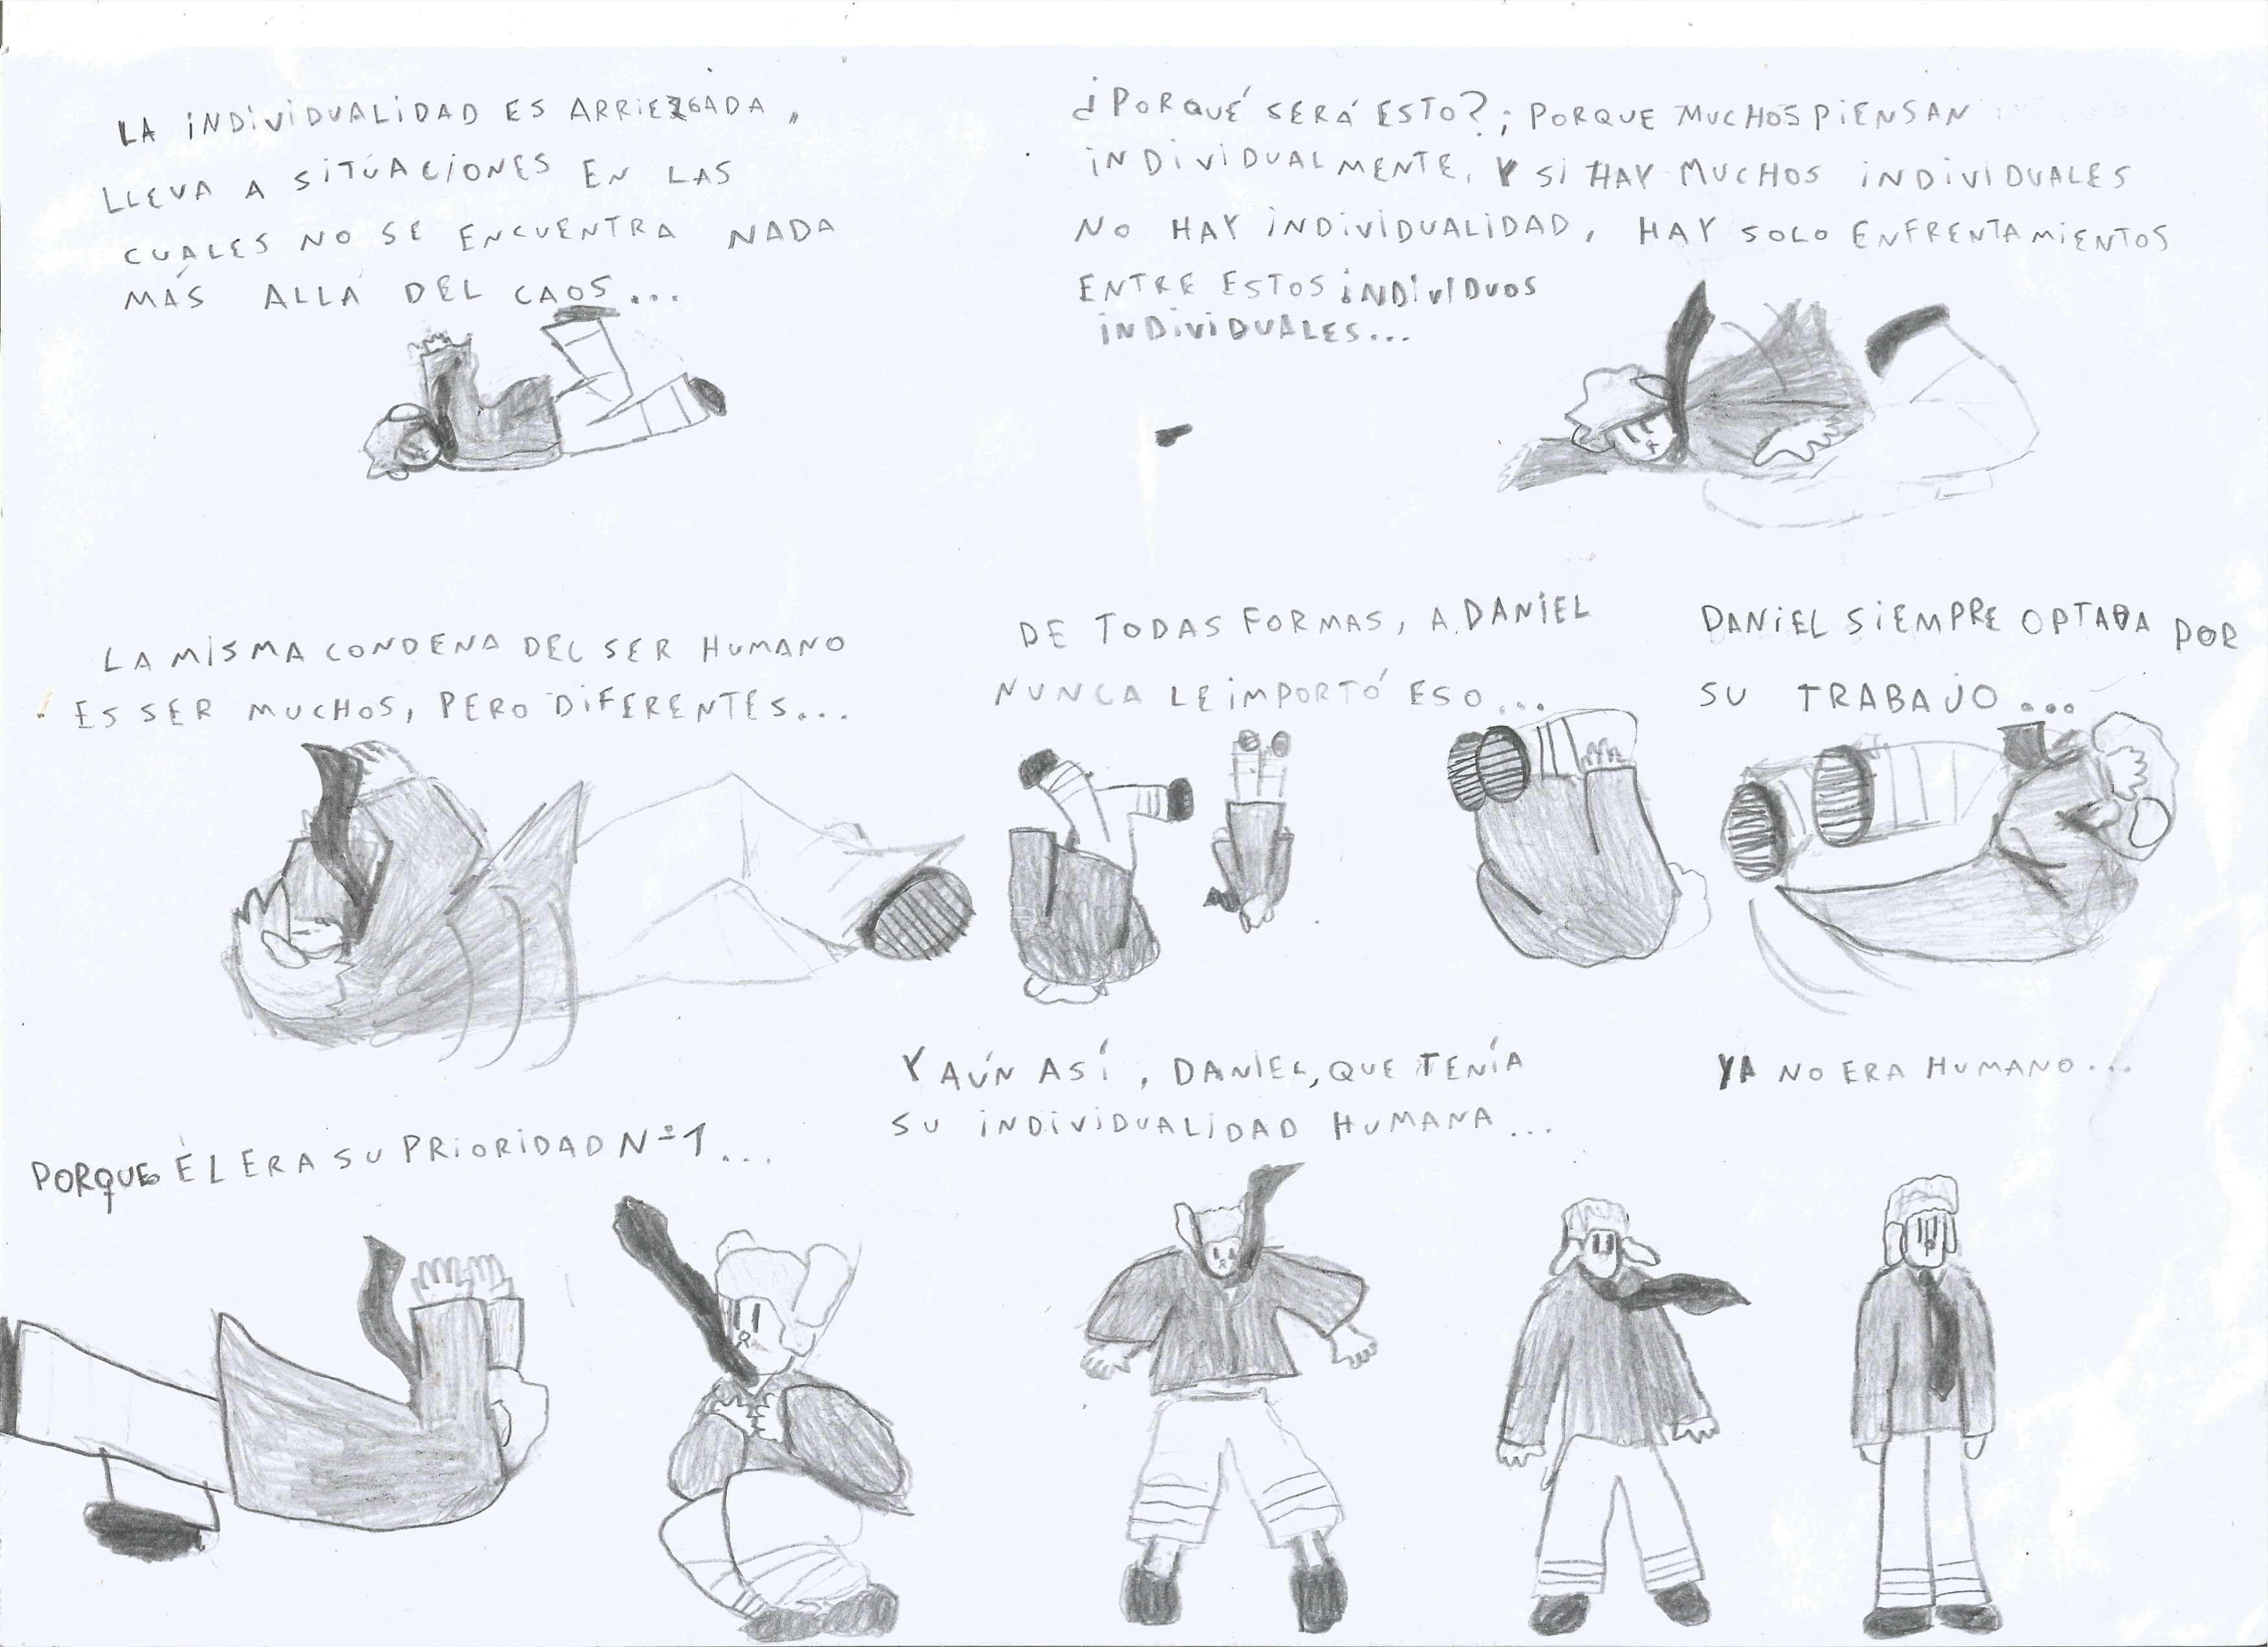 LA INDIVIDUALIDAD ES ARRIEZGADA,
LLEVA A SITUACIONES EN LAS
CUALES NO SE ENCUENTRA NADA
MÁS ALLÁ DEL CAOS...
¿PORQUÉ SERÁ ESTO?; PORQUE MUCHOS PIENSAN
INDIVIDUALMENTE, Y SI HAY MUCHOS INDIVIDUALES
NO HAY INDIVIDUALIDAD, HAY SOLO ENFRENTAMIENTOS
ENTRE ESTOS INDIVIDUOS
INDIVIDUALES...
LA MISMA CONDENA DEL SER HUMANO
ES SER MUCHOS, PERO DIFERENTES...
DE TODAS FORMAS, A DANIEL
NUNCA LE IMPORTÓ ESO...
DANIEL SIEMPRE OPTABA POR
SU TRABAJO...
PORQUE ÉL ERA SU PRIORIDAD Nº1...
Y AÚN ASÍ, DANIEL, QUE TENÍA
SU INDIVIDUALIDAD HUMANA...
YA NO ERA HUMANO...